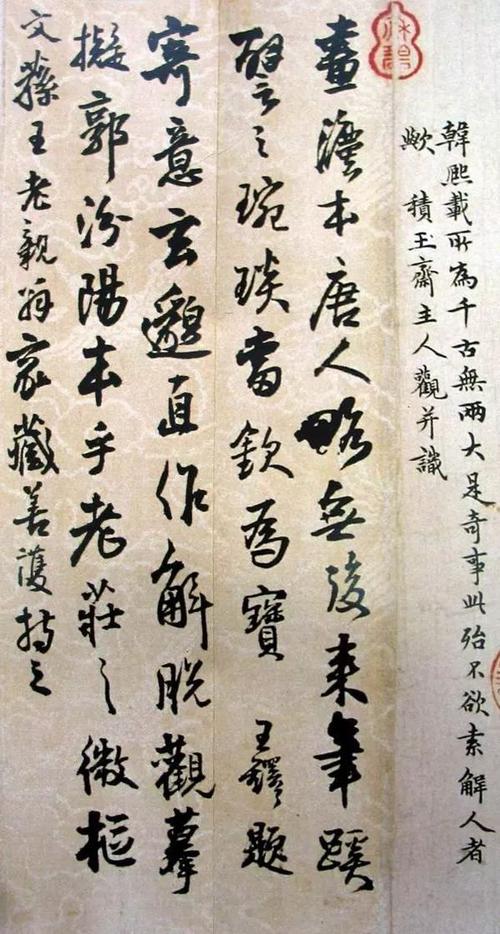 韓熙載所為千古無兩大是奇事此殆不欲索解人者
歟 積玉齋主人觀并識
畫灋本唐人略無後来筆蹊
譬之琬琰當欽為寶 王鐸題
寄意玄邈直作解脫觀摹
擬郭汾陽本乎老莊之微樞
文蓀王老親翁裒藏善護持之